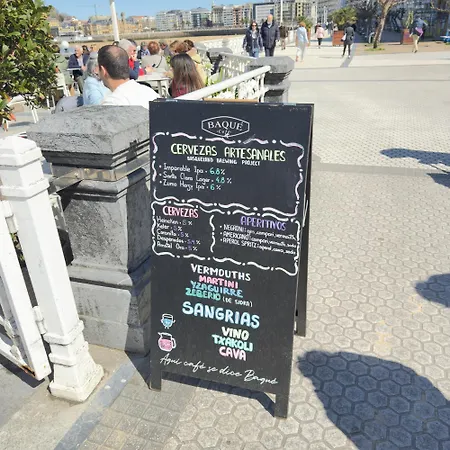 BAQUÉ
Café
CERVEZAS ARTESANALES
BASQUELAND BREWING PROJECT
- Imparable Ipa - 6.8%
- Santa Clara Lager - 4.8%
- Zumo Hazy Ipa - 6%
CERVEZAS
Heineken - 5%
Keler - 5%
Coronilla - 5%
Desperados - 5.9
Amstel Oro - 5%
APERITIVOS
- NEGRONI: gin, campari, vermouth
- AMERICANO: campari, vermouth, soda
- APEROL SPRITZ: aperol, cava, soda
VERMOUTHS
MARTINI
YZAGUIRRE
ZEBERIO (DE SIDRA)
SANGRIAS
VINO
TXAKOLI
CAVA
Aquí café se dice Baqué